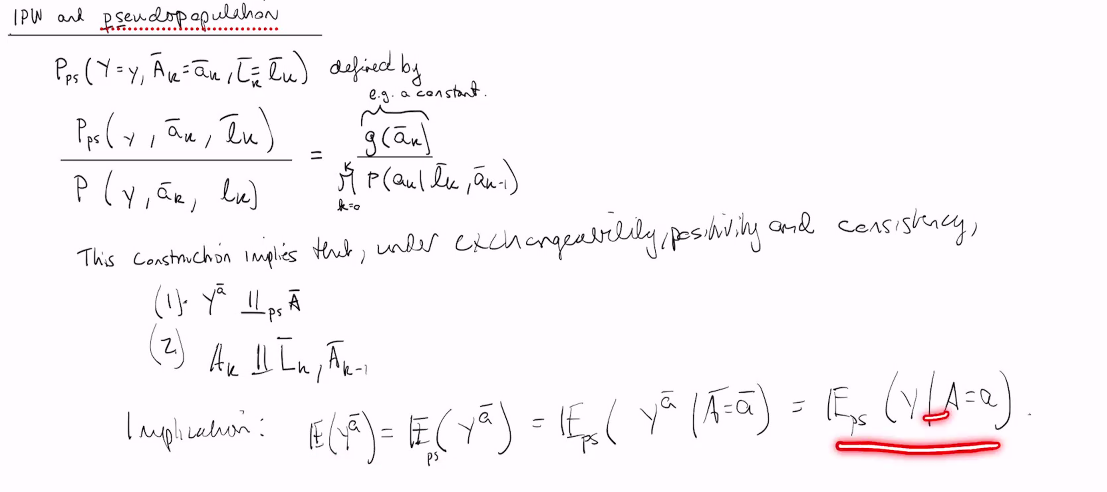 IPW and pseudopopulation
P_ps(Y=y, Ā_k=ā_k, L̄_k=l̄_k) defined by
e.g. a constant.
P_ps(y, ā_k, l̄_k) / P(y, ā_k, l_k) = g(ā_k) / ∏_{k=0}^{K} P(a_k | l̄_k, ā_{k-1})
This construction implies that, under exchangeability, positivity and consistency,
(1). Y^ā ⫫_ps Ā
(2) A_k ⫫ L̄_k, Ā_{k-1}
Implication: 𝔼(Y^ā) = 𝔼_ps(Y^ā) = 𝔼_ps(Y^ā | Ā=ā) = 𝔼_ps(Y | A=a).